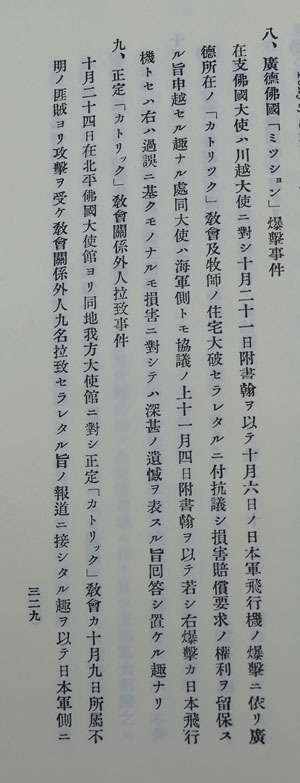 八、廣德佛國「ミツシヨン」爆擊事件
在支佛國大使ハ川越大使ニ對シ十月二十一日附書翰ヲ以テ十月六日ノ日本軍飛行機ノ爆擊ニ依リ廣
德所在ノ「カトリツク」敎會及牧師ノ住宅大破セラレタルニ付抗議シ損害賠償要求ノ權利ヲ留保ス
ル旨申越セル趣ナル處同大使ハ海軍側トモ協議ノ上十一月四日附書翰ヲ以テ若シ右爆擊カ日本飛行
機トセハ右ハ過誤ニ基クモノナルモ損害ニ對シテハ深甚ノ遺憾ヲ表スル旨回答シ置ケル趣ナリ
九、正定「カトリック」敎會關係外人拉致事件
十月二十四日在北平佛國大使館ヨリ同地我方大使館ニ對シ正定「カトリック」敎會カ十月九日所屬不
明ノ匪賊ヨリ攻擊ヲ受ケ敎會關係外人九名拉致セラレタル旨ノ報道ニ接シタル趣ヲ以テ日本軍側ニ
三二九